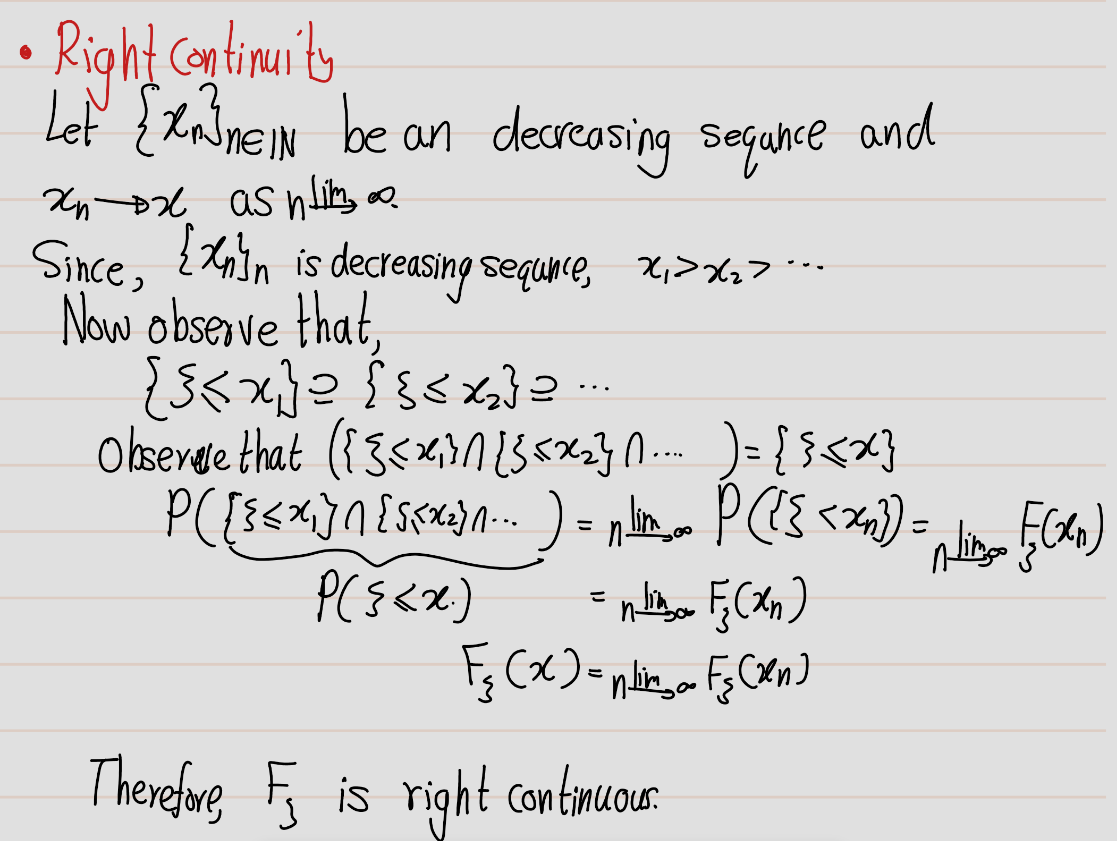 • Right Continuity
Let {xₙ}ₙ∈ℕ be an decreasing sequnce and
xₙ → x as n lim→ ∞.
Since, {xₙ}ₙ is decreasing sequnce, x₁ > x₂ > ⋯
Now observe that,
{ξ ≤ x₁} ⊇ {ξ ≤ x₂} ⊇ ⋯
Observe that ({ξ ≤ x₁} ∩ {ξ ≤ x₂} ∩ ⋯ ) = {ξ ≤ x}
P({ξ ≤ x₁} ∩ {ξ ≤ x₂} ∩ ⋯ ) = n lim→ ∞ P({ξ < xₙ}) = n lim→ ∞ F_ξ(xₙ)
P(ξ ≤ x.) = n lim→ ∞ F_ξ(xₙ)
F_ξ(x) = n lim→ ∞ F_ξ(xₙ)
Therefore, F_ξ is right continuous.